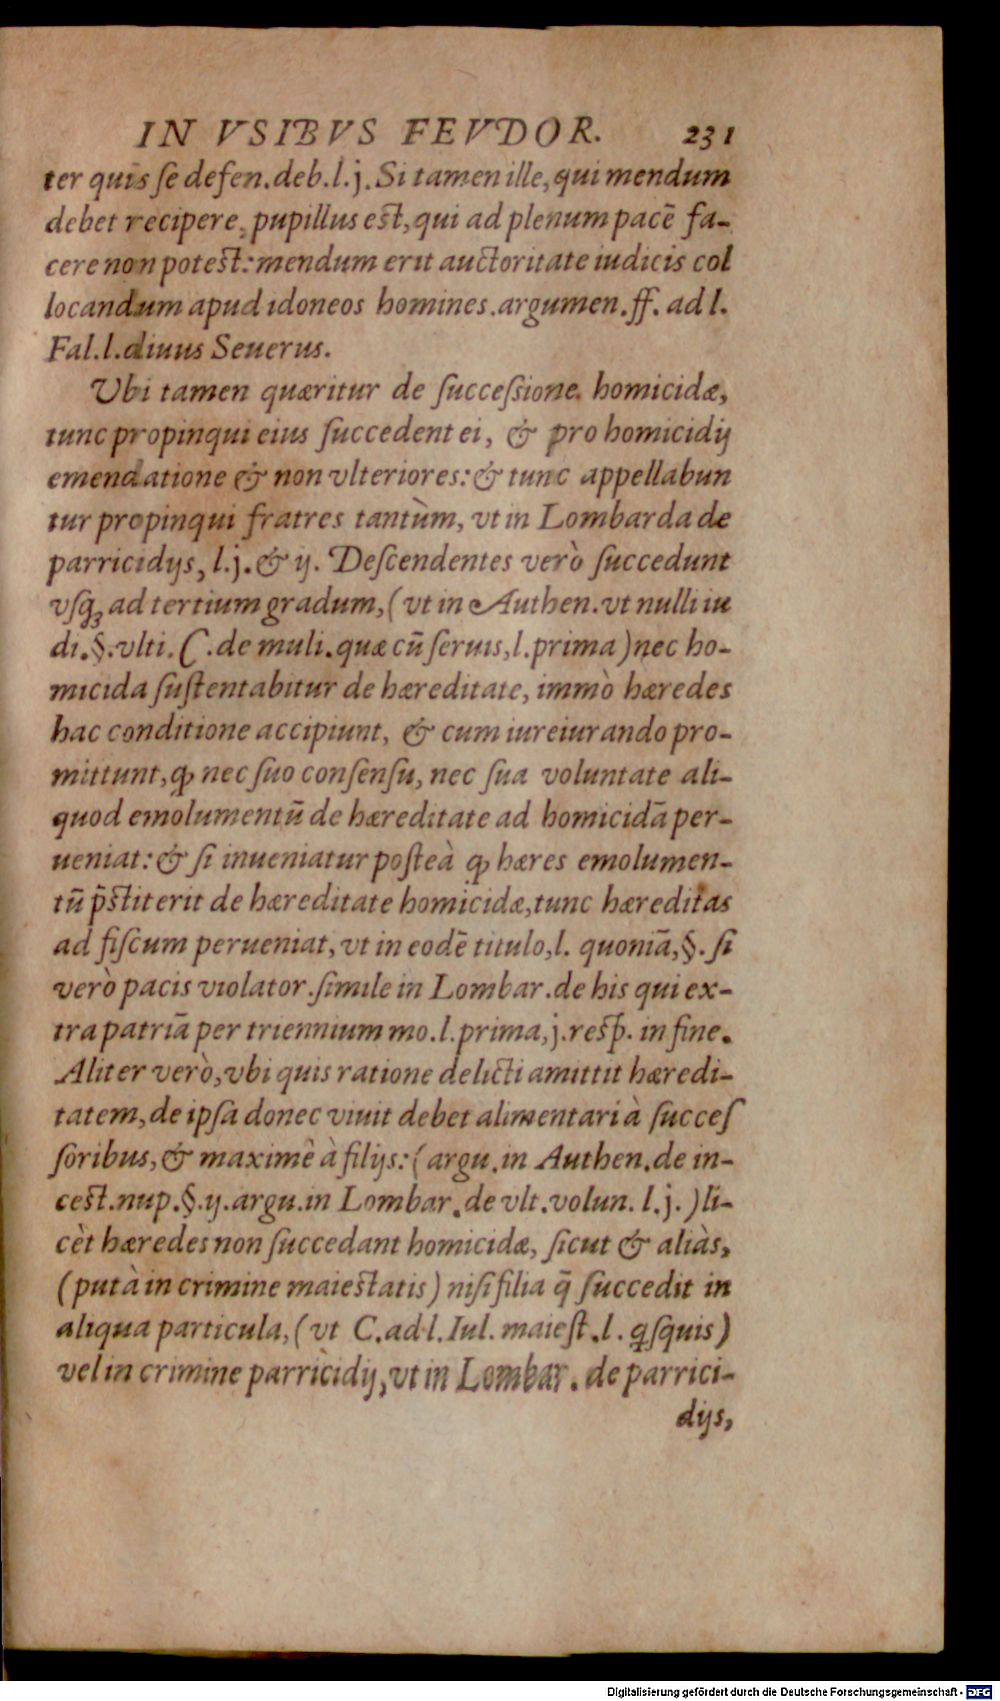 IN VSIBVS FEVDOR. 231
ter quis se defen. deb. l. j. Si tamen ille, qui mendum
debet recipere, pupillus est, qui ad plenum pacē fa-
cere non potest: mendum erit auctoritate iudicis col
locandum apud idoneos homines. argumen. ff. ad l.
Fal. l. diuus Seuerus.
Vbi tamen quæritur de successione homicidæ,
tunc propinqui eius succedent ei, & pro homicidij
emendatione & non vlteriores: & tunc appellabun
tur propinqui fratres tantùm, vt in Lombarda de
parricidijs, l. j. & ij. Descendentes verò succedunt
vsq; ad tertium gradum, (vt in Authen. vt nulli iu
di. §. vlti. C. de muli. quæ cū seruis, l. prima) nec ho-
micida sustentabitur de hæreditate, immò hæredes
hac conditione accipiunt, & cum iureiurando pro-
mittunt, ꝙ nec suo consensu, nec sua voluntate ali-
quod emolumentū de hæreditate ad homicidā per-
ueniat: & si inueniatur posteà ꝙ hæres emolumen-
tū p̄stiterit de hæreditate homicidæ, tunc hæreditas
ad fiscum perueniat, vt in eodē titulo, l. quoniā, §. si
verò pacis violator. simile in Lombar. de his qui ex-
tra patriā per triennium mo. l. prima, j. resp. in fine.
Aliter verò, vbi quis ratione delicti amittit hæredi-
tatem, de ipsa donec viuit debet alimentari à succes
soribus, & maximè à filijs: (argu. in Authen. de in-
cest. nup. §. ij. argu. in Lombar. de vlt. volun. l. j.) li-
cèt hæredes non succedant homicidæ, sicut & aliàs,
(putà in crimine maiestatis) nisi filia q̄ succedit in
aliqua particula, (vt C. ad l. Iul. maiest. l. qsquis)
vel in crimine parricidij, vt in Lombar. de parrici-
dijs,
Digitalisierung gefördert durch die Deutsche Forschungsgemeinschaft - DFG